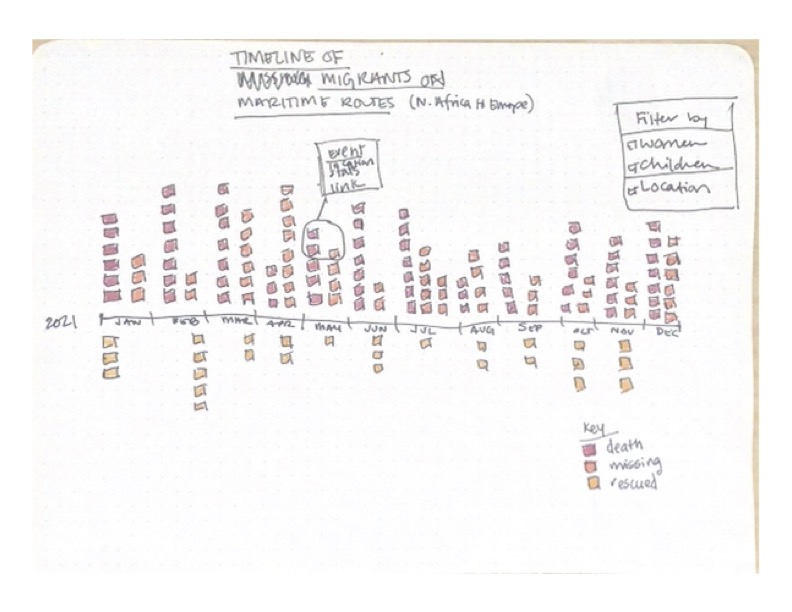 TIMELINE OF
MIGRANTS ON
MARITIME ROUTES (N. Africa to Europe)
Filter by
women
children
Location
Event
location
stats
link
2021
JAN FEB MAR APR MAY JUN JUL AUG SEP OCT NOV DEC
Key
death
missing
rescued